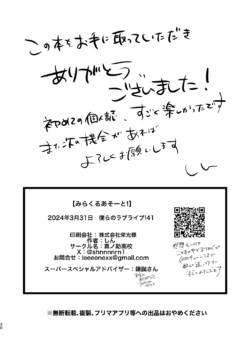 この本をお手に取っていただき
ありがとう
ございました！
初めての個人誌、すごく楽しかったです
また次の機会があれば
よろしくお願いします
しん
【みらくるあそーと！】
2024年3月31日 僕らのラブライブ!41
印刷会社：株式会社栄光様
作者：しん
サークル：真ノ助高校
X：@shnnnnrn1
お問合せ：ieeeenexx@gmail.com
スーパースペシャルアドバイザー：鎌田さん
※無断転載、複製、フリマアプリ等への出品はおやめください